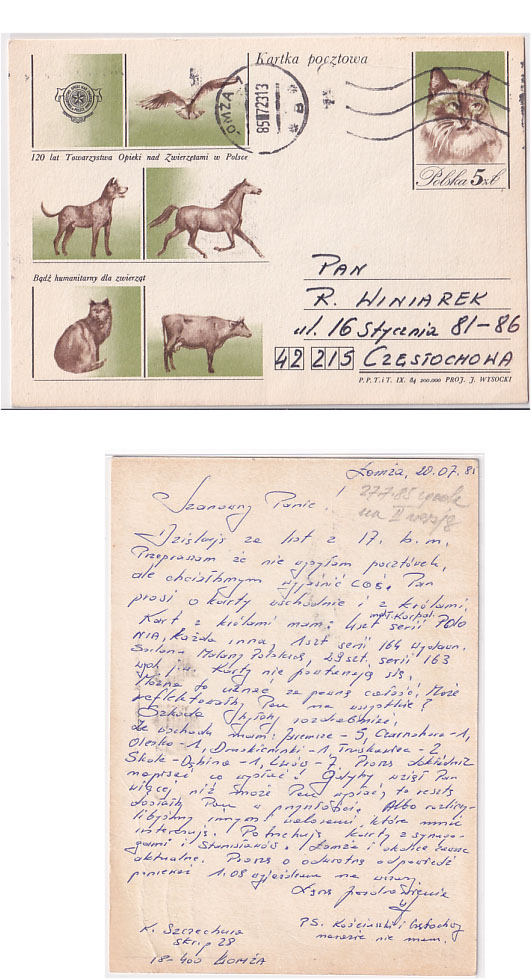 Kartka pocztowa
ŁOMŻA 1
85 072313
120 lat Towarzystwa Opieki nad Zwierzętami w Polsce
Polska 5 zł
Bądź humanitarny dla zwierząt
PAN
R. WINIAREK
ul. 16 Stycznia 81-86
42 215 CZĘSTOCHOWA
P.P.T.iT. IX. 84 200.000 PROJ. J. WYSOCKI
Łomża, 20.07.85
27.7.85
na II wersję
Szanowny Panie!
Dziękuję za list z 17. b.m.
Przepraszam że nie wysyłam pocztówek,
ale chciałbym wyjaśnić coś. Pan
prosi o karty wschodnie i z królami.
Kart z królami mam: 4szt serii POLO
NIA, każda inna, 1szt serii 164 wydawn.
Salon Malarzy Polskich, 29szt. serii 163
wyd j.w. Karty nie powtarzają się.
Można to uznać za pewną całość, Może
reflektowałby Pan na wszystkie?
Szkoda byłoby rozdrabniać.
Ze wschodu mam: Jaremcze - 5, Czarnohora - 1,
Olesko - 1, Druskieniki - 1, Truskawiec - 2
Skole - Dębina - 1, Lwów - 7. Proszę dokładnie
napisać co wysłać? Gdyby wziął Pan
więcej niż może Pan wysłać, to resztę
dosłałby Pan w przyszłości. Albo rozliczy-
libyśmy innymi walorami, które mnie
interesują. Potrzebuję karty z synago-
gami i Stanisławów. Łomża i okolice zawsze
aktualne. Proszę o odwrotną odpowiedź
ponieważ 1.08 wyjeżdżam na wczasy
Łączę pozdrowienia
K. Szczechura
skr. p 28
18-400 ŁOMŻA
PS. Kościuszki i Częstochowy
narazie nie mam.